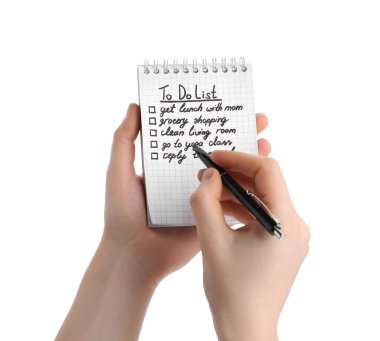 To Do List
get lunch with mom
grocery shopping
clean living room
go to yoga class
reply